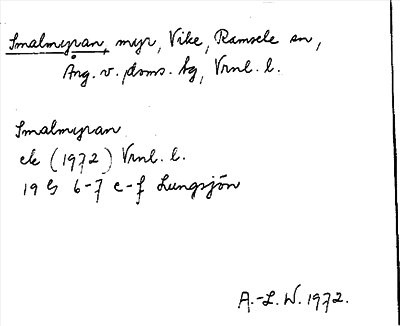 Smalmyran, myr, Vike, Ramsele sn,
Ång. v. doms. tg, Vrnl. l.
Smalmyran
ek (1972) Vrnl. l.
19 G 6-7 e-f Lungsjön
A.-L. W. 1972.